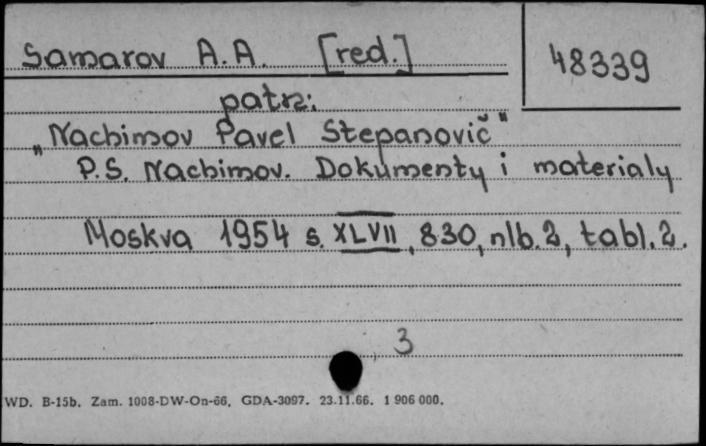 Samarov A.A. [red.] 48339
patrz:
„Nachimov Pavel Stepanovič"
P.S. Nachimov. Dokumenty i materialy
Moskva 1954 s. XLVII, 830, nlb. 2, tabl. 2.
3
WD. B-15b. Zam. 1008-DW-On-66. GDA-3097. 23.11.66. 1 906 000.